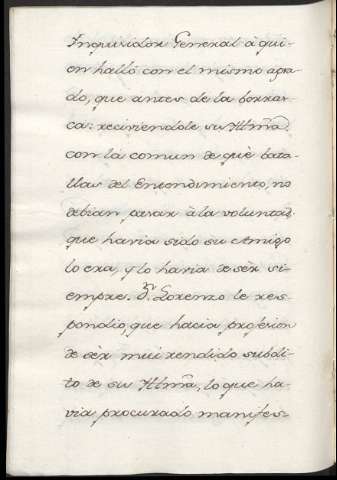 Inquisidor General à qui-
en halló con el mismo agra-
do, que antes de la borras-
ca: reciviendole su Illmã
con la comun de què bata-
llas del Entendimiento, no
debian pasar à la voluntad,
que havia sido su Amigo
lo era, y lo havia de sèr si-
empre. Dn. Lorenzo le res-
pondio, que hacia profesion
de sèr mui rendido subdi-
to de su Illmã, lo que ha-
via procurado manifes-